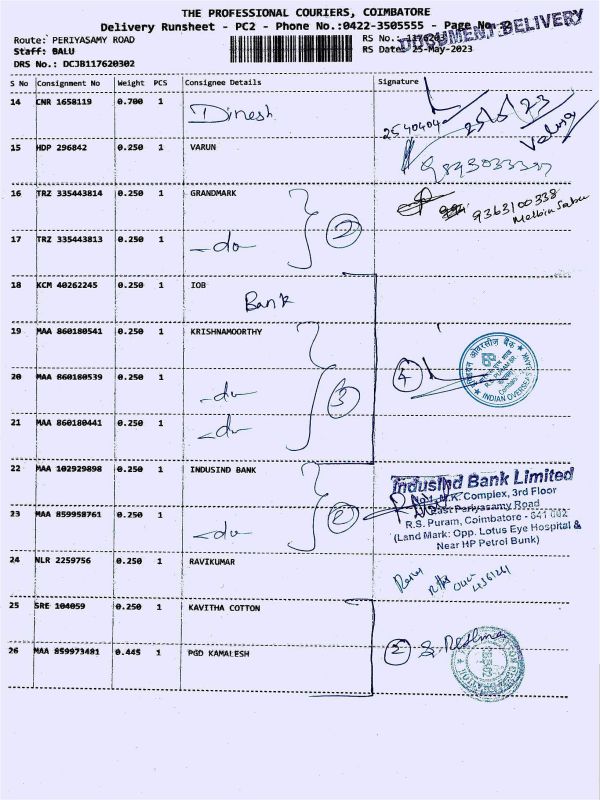 THE PROFESSIONAL COURIERS, COIMBATORE
Delivery Runsheet - PC2 - Phone No.:0422-3505555 - Page No. 2
DOCUMENT DELIVERY
Route: PERIYASAMY ROAD
RS No.:
Staff: BALU
RS Date: 25-May-2023
DRS No.: DCJB117620302
S No Consignment No Weight PCS Consignee Details Signature
14 CNR 1658119 0.700 1 Dinesh
2540404 25/5/23
15 HDP 296842 0.250 1 VARUN
16 TRZ 335443814 0.250 1 GRANDMARK
2
9363100338
17 TRZ 335443813 0.250 1 -do-
18 KCM 40262245 0.250 1 IOB
Bank
19 MAA 860180541 0.250 1 KRISHNAMOORTHY
4
INDIAN OVERSEAS
20 MAA 860180539 0.250 1 -do-
3
21 MAA 860180441 0.250 1 -do-
22 MAA 102929898 0.250 1 INDUSIND BANK
IndusInd Bank Limited
Complex, 3rd Floor
23 MAA 859958761 0.250 1 -do-
2
East Periyasamy Road
R.S. Puram, Coimbatore - 641 002
(Land Mark: Opp. Lotus Eye Hospital &
Near HP Petrol Bunk)
24 NLR 2259756 0.250 1 RAVIKUMAR
25 SRE 104059 0.250 1 KAVITHA COTTON
26 MAA 859973481 0.445 1 PGD KAMALESH
2